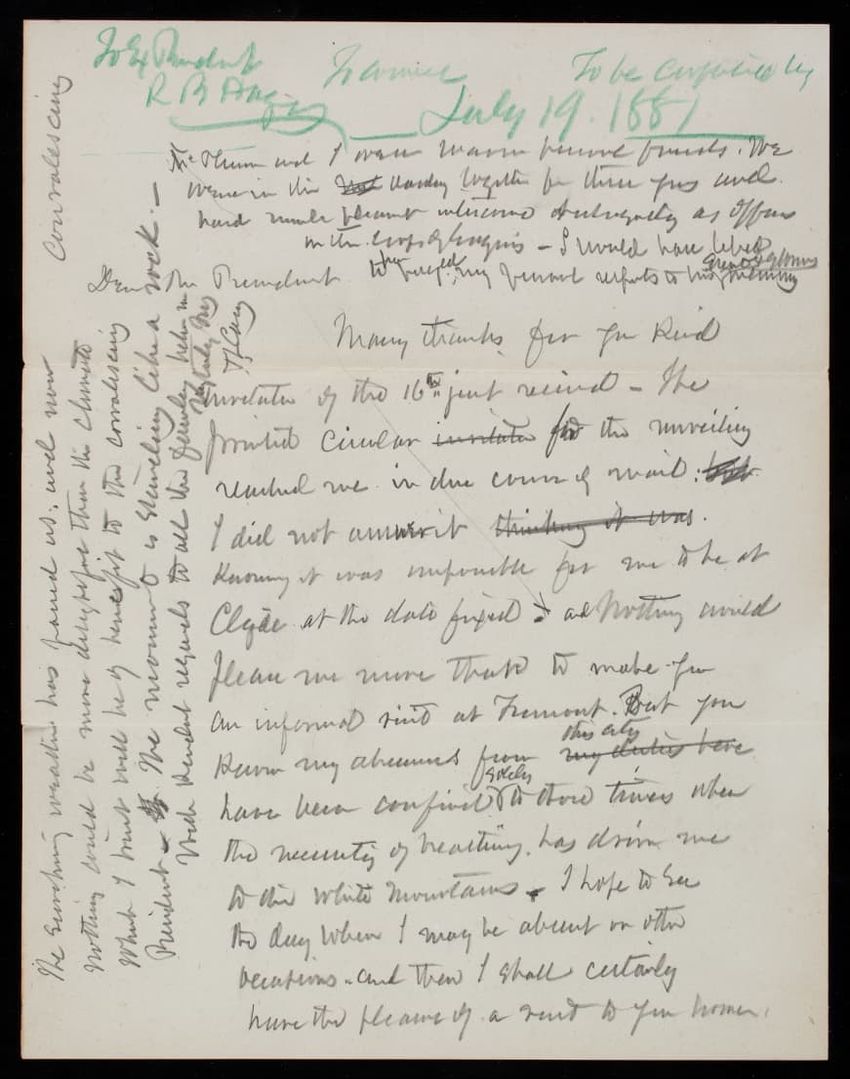 To Ex President
R B Hayes
Fremont
To be copied by
July 19. 1881
and I were warm personal friends. We
were in this together for three years and
had much pleasant intercourse subsequently as officers
in the Corps of Engineers - I would have liked
to have my personal respects to his memory
Dear Mr President
Many thanks for your kind
invitation of the 16th just received - The
printed circular invitation for the unveiling
reached me in due course of mail: but
I did not answer it thinking it was.
Knowing it was impossible for me to be at
Clyde at the date fixed and Nothing would
please me more than to make you
an informal visit at Fremont. But you
know my absences from this city my duties here
have been confined solely to those times when
the necessity of breathing has driven me
to the White Mountains. I hope to see
the day when I may be absent on other
vacations. and then I shall certainly
have the pleasure of a visit to your home.
The scorching weather has passed us, and now
nothing could be more delightful than the climate
which I trust will be of benefit to the convalescing
President - The moment is standing like a rock. -
With kindest regards to all the family believe me
Very truly yrs
T L Casey
Convalescing